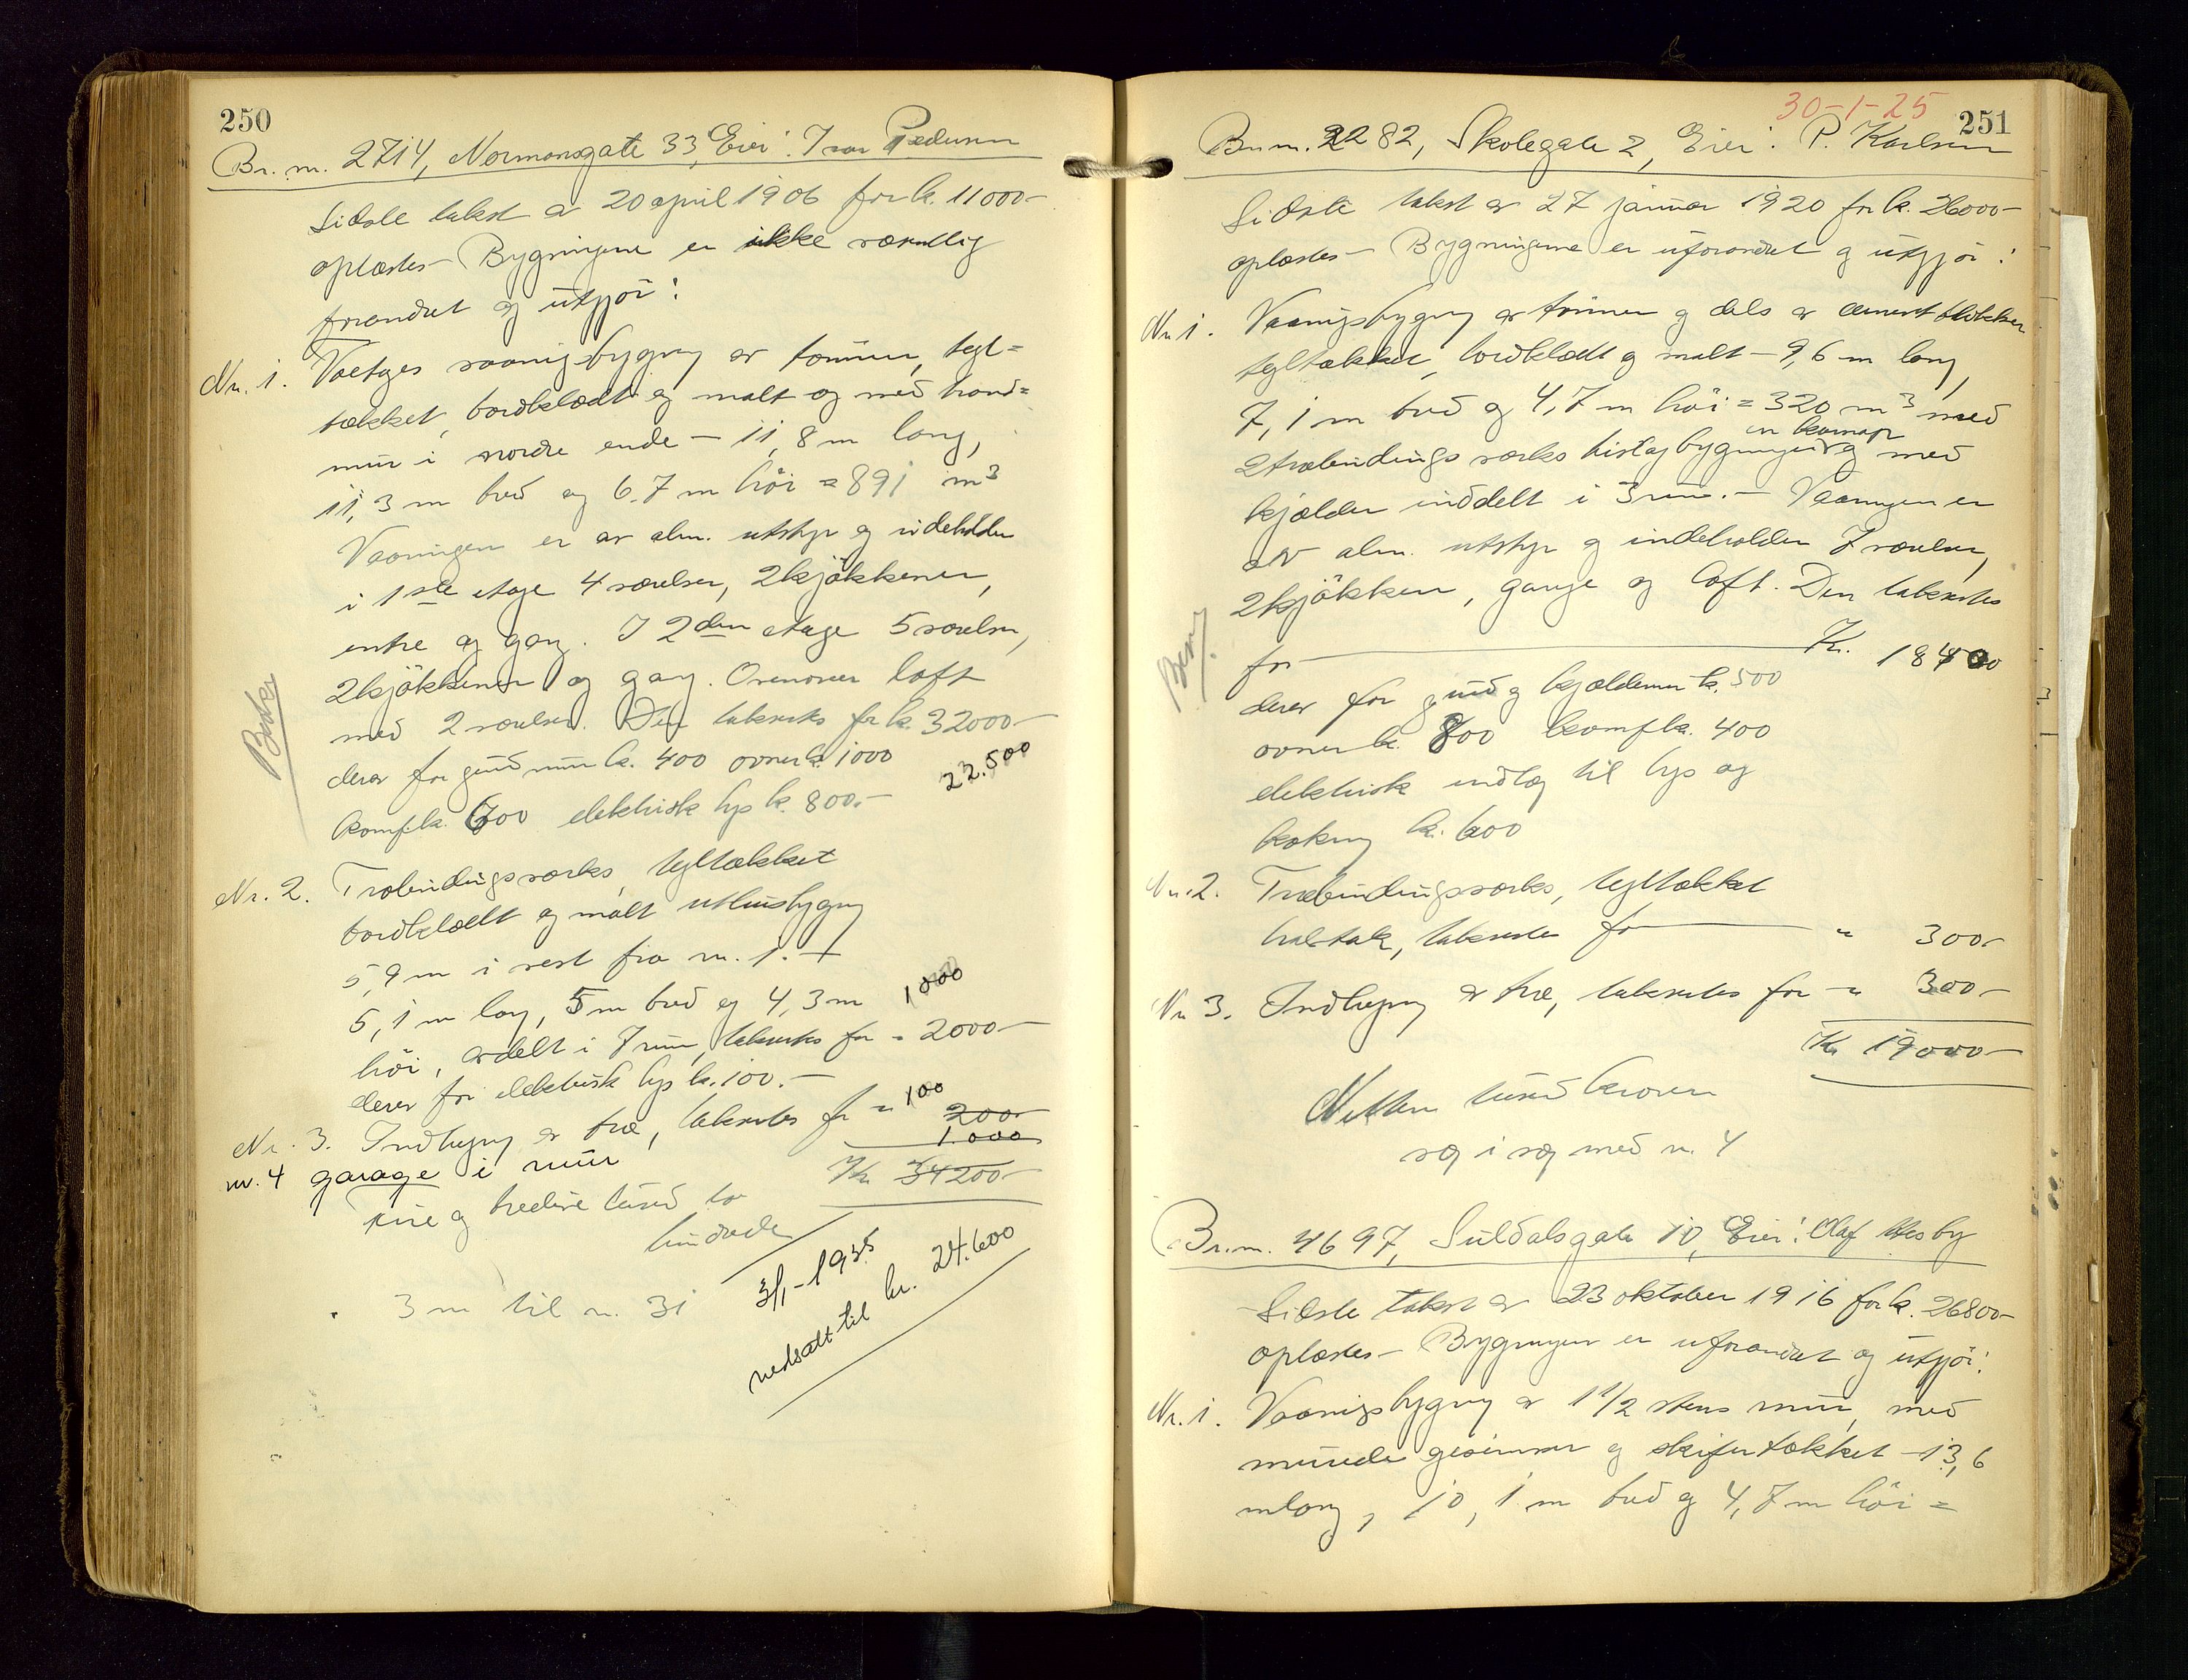 250
Br. nr. 2714, Normansgate 33, Eier: Ivar Pedersen
Sidste takst av 20 april 1906 for kr. 11000-
oplæstes - Bygningene er ikke væsentlig
forandret og utgjør:
Nr. 1. Toetages vaaningsbygning av tømmer, tegl=
tækket, bordklædt og malt og med brand=
mur i nordre ende - 11,8 m lang,
11,3 m bred og 6,7 m høi = 891 m³
Vaaningen er av alm. utstyr og indeholder
i 1ste etage 4 værelser, 2 kjøkkener,
entre og gang. I 2den etage 5 værelser,
2 kjøkkener og gang. Ovenover loft
med 2 værelser. Den takseres for kr. 32000-
derav for grundmur kr. 400 ovner kr. 1000
22.500
komf. kr. 600 elektrisk lys kr. 800.-
Nr. 2. Træbindingsverks, tegltækket
bordklædt og malt uthusbygning
5,9 m i vest fra nr. 1. -
5,1 m lang, 5 m bred og 4,3 m
1000
høi, avdelt i 7 rum, takseres for " 2000-
derav for elektrisk lys kr. 100.-
Nr. 3. Indhegning av træ, takseres for " 100
200-
nr. 4 garage i mur 1.000
Kr 34200-
fire og tredive tusind to
hundrede
3 m til nr. 31
3/1-1935
nedsatt til kr. 24.600
30-1-25
251
Br. nr. 2282, Skolegate 2, Eier: P. Karlsen
Sidste takst av 27 januar 1920 for kr. 26000-
oplæstes - Bygningene er uforandret og utgjør:
Nr. 1. Vaaningsbygning av tømmer og dels av cementblokker
tegltækket, bordklædt og malt - 9,6 m lang,
7,1 m bred og 4,7 m høi = 320 m³ med
en karnap
2 træbindingsverks bislagbygninger og med
kjælder inddelt i 3 rum. - Vaaningen er
av alm. utstyr og indeholder 7 værelser,
2 kjøkken, gange og loft. Den takseres
for Kr. 18400
derav for grund og kjældermur kr. 500
ovner kr. 800 komf. kr. 400
elektrisk indlæg til lys og
kokning kr. 600
Nr. 2. Træbindingsverks, tegltækket
halvtak, takseres for " 300-
Nr 3. Indhegning av træ, takseres for " 300-
Kr 19000-
Nitten tusind kroner
væg i væg med nr. 4
Br. nr. 4697, Suldalsgate 10, Eier: Olaf
Sidste takst av 23 oktober 1916 for kr. 26800-
oplæstes - Bygningen er uforandret og utgjør:
Nr. 1. Vaaningsbygning av 1 1/2 stens mur, med
murede gesimser og skifertækket - 13,6
m lang, 10,1 m bred og 4,7 m høi =